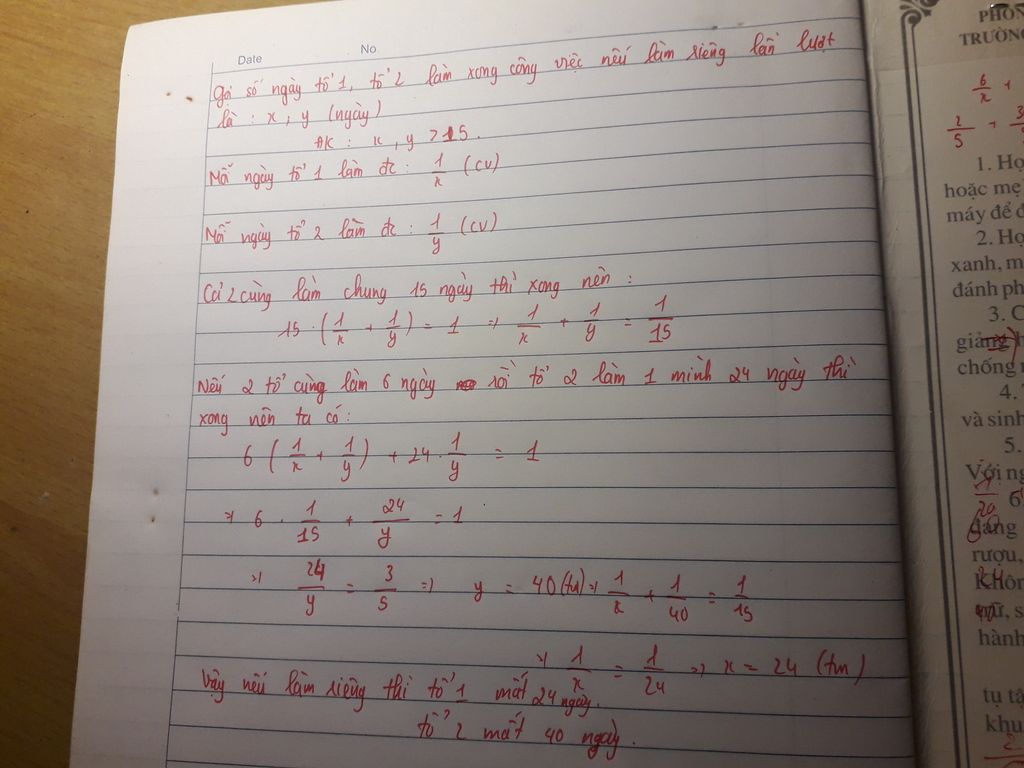 Date No
Gọi số ngày tổ 1, tổ 2 làm xong công việc nếu làm riêng lần lượt
là : x, y (ngày)
ĐK : x, y > 15.
Mỗi ngày tổ 1 làm đc : 1/x (cv)
Mỗi ngày tổ 2 làm đc : 1/y (cv)
Cả 2 cùng làm chung 15 ngày thì xong nên :
15 . (1/x + 1/y) = 1 => 1/x + 1/y = 1/15
Nếu 2 tổ cùng làm 6 ngày rồi tổ 2 làm 1 mình 24 ngày thì
xong nên ta có :
6 (1/x + 1/y) + 24 . 1/y = 1
=> 6 . 1/15 + 24/y = 1
=> 24/y = 3/5 => y = 40 (tm) => 1/x + 1/40 = 1/15
=> 1/x = 1/24 => x = 24 (tm)
Vậy nếu làm riêng thì tổ 1 mất 24 ngày.
tổ 2 mất 40 ngày.
PHÒN
TRƯỜNG
6/x +
2/5 +
1. Họ
hoặc mẹ
máy để đ
2. Họ
xanh, m
đánh ph
3. C
giảng
chống
4.
và sinh
5.
Với ng
rượu,
hành
tụ tậ
khu